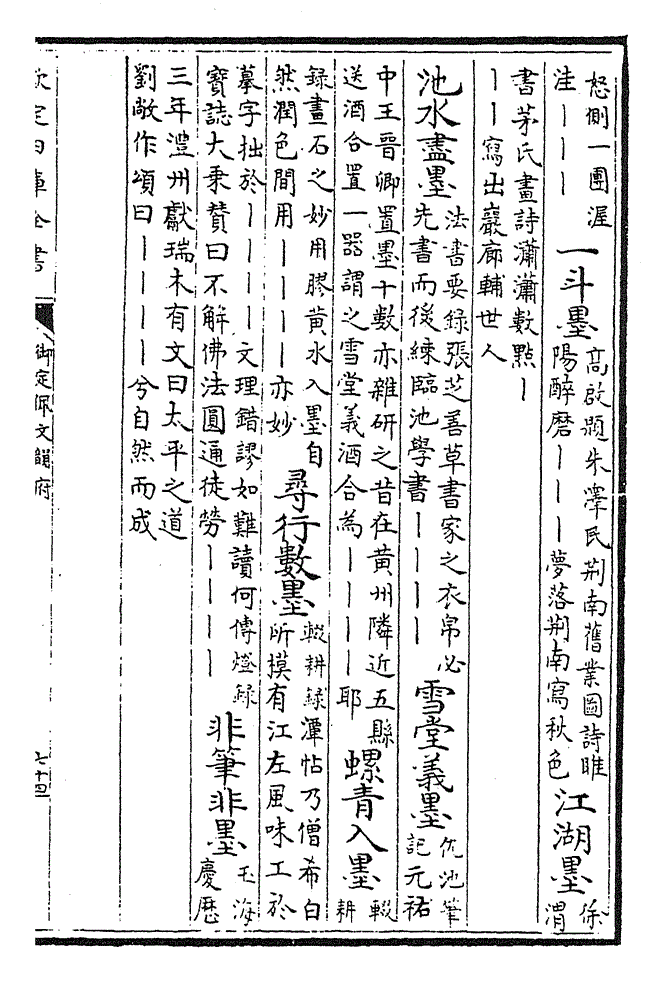 怒側一團渥
洼｜｜｜
一斗墨
高啟題朱澤民荆南舊業圖詩睢
陽醉磨｜｜｜夢落荆南寫秋色
江湖墨
徐
渭
書茅氏畫詩瀟瀟數點｜
｜｜寫出巖廊輔世人
池水盡墨
法書要錄張芝善草書家之衣帛必
先書而後練臨池學書｜｜｜｜
雪堂義墨
仇池筆
記元祐
中王晉卿置墨十數亦雜研之昔在黄州隣近五縣
送酒合置一器謂之雪堂義酒合為｜｜｜｜耶
螺青入墨
輟
耕
録畫石之妙用膠黄水入墨自
然潤色間用｜｜｜｜亦妙
尋行數墨
輟耕録潭帖乃僧希白
所摸有江左風味工於
摹字拙於｜｜｜｜文理錯謬如難讀何傳燈録
寶誌大乘贊曰不解佛法圓通徒勞｜｜｜｜
非筆非墨
玉海
慶厯
三年澧州獻瑞木有文曰太平之道
劉敞作頌曰｜｜｜｜兮自然而成
欽定四庫全書
御定佩文韻府
七十四